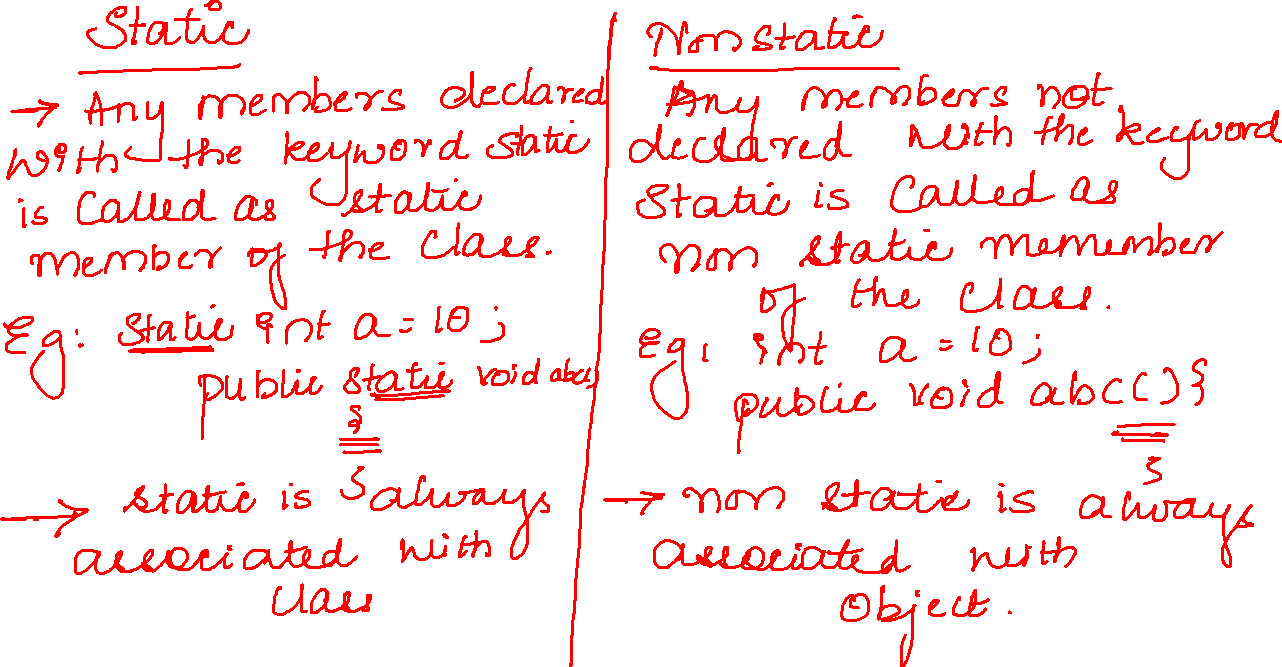 Static
→ Any members declared
with the keyword static
is Called as static
member of the Class.
Eg: Static int a = 10;
public static void abc()
{
}
→ static is always
associated with
Class
Non static
Any members not
declared with the keyword
Static is Called as
non static memember
of the class.
Eg: int a = 10;
public void abc() {
}
→ non static is always
associated with
Object.